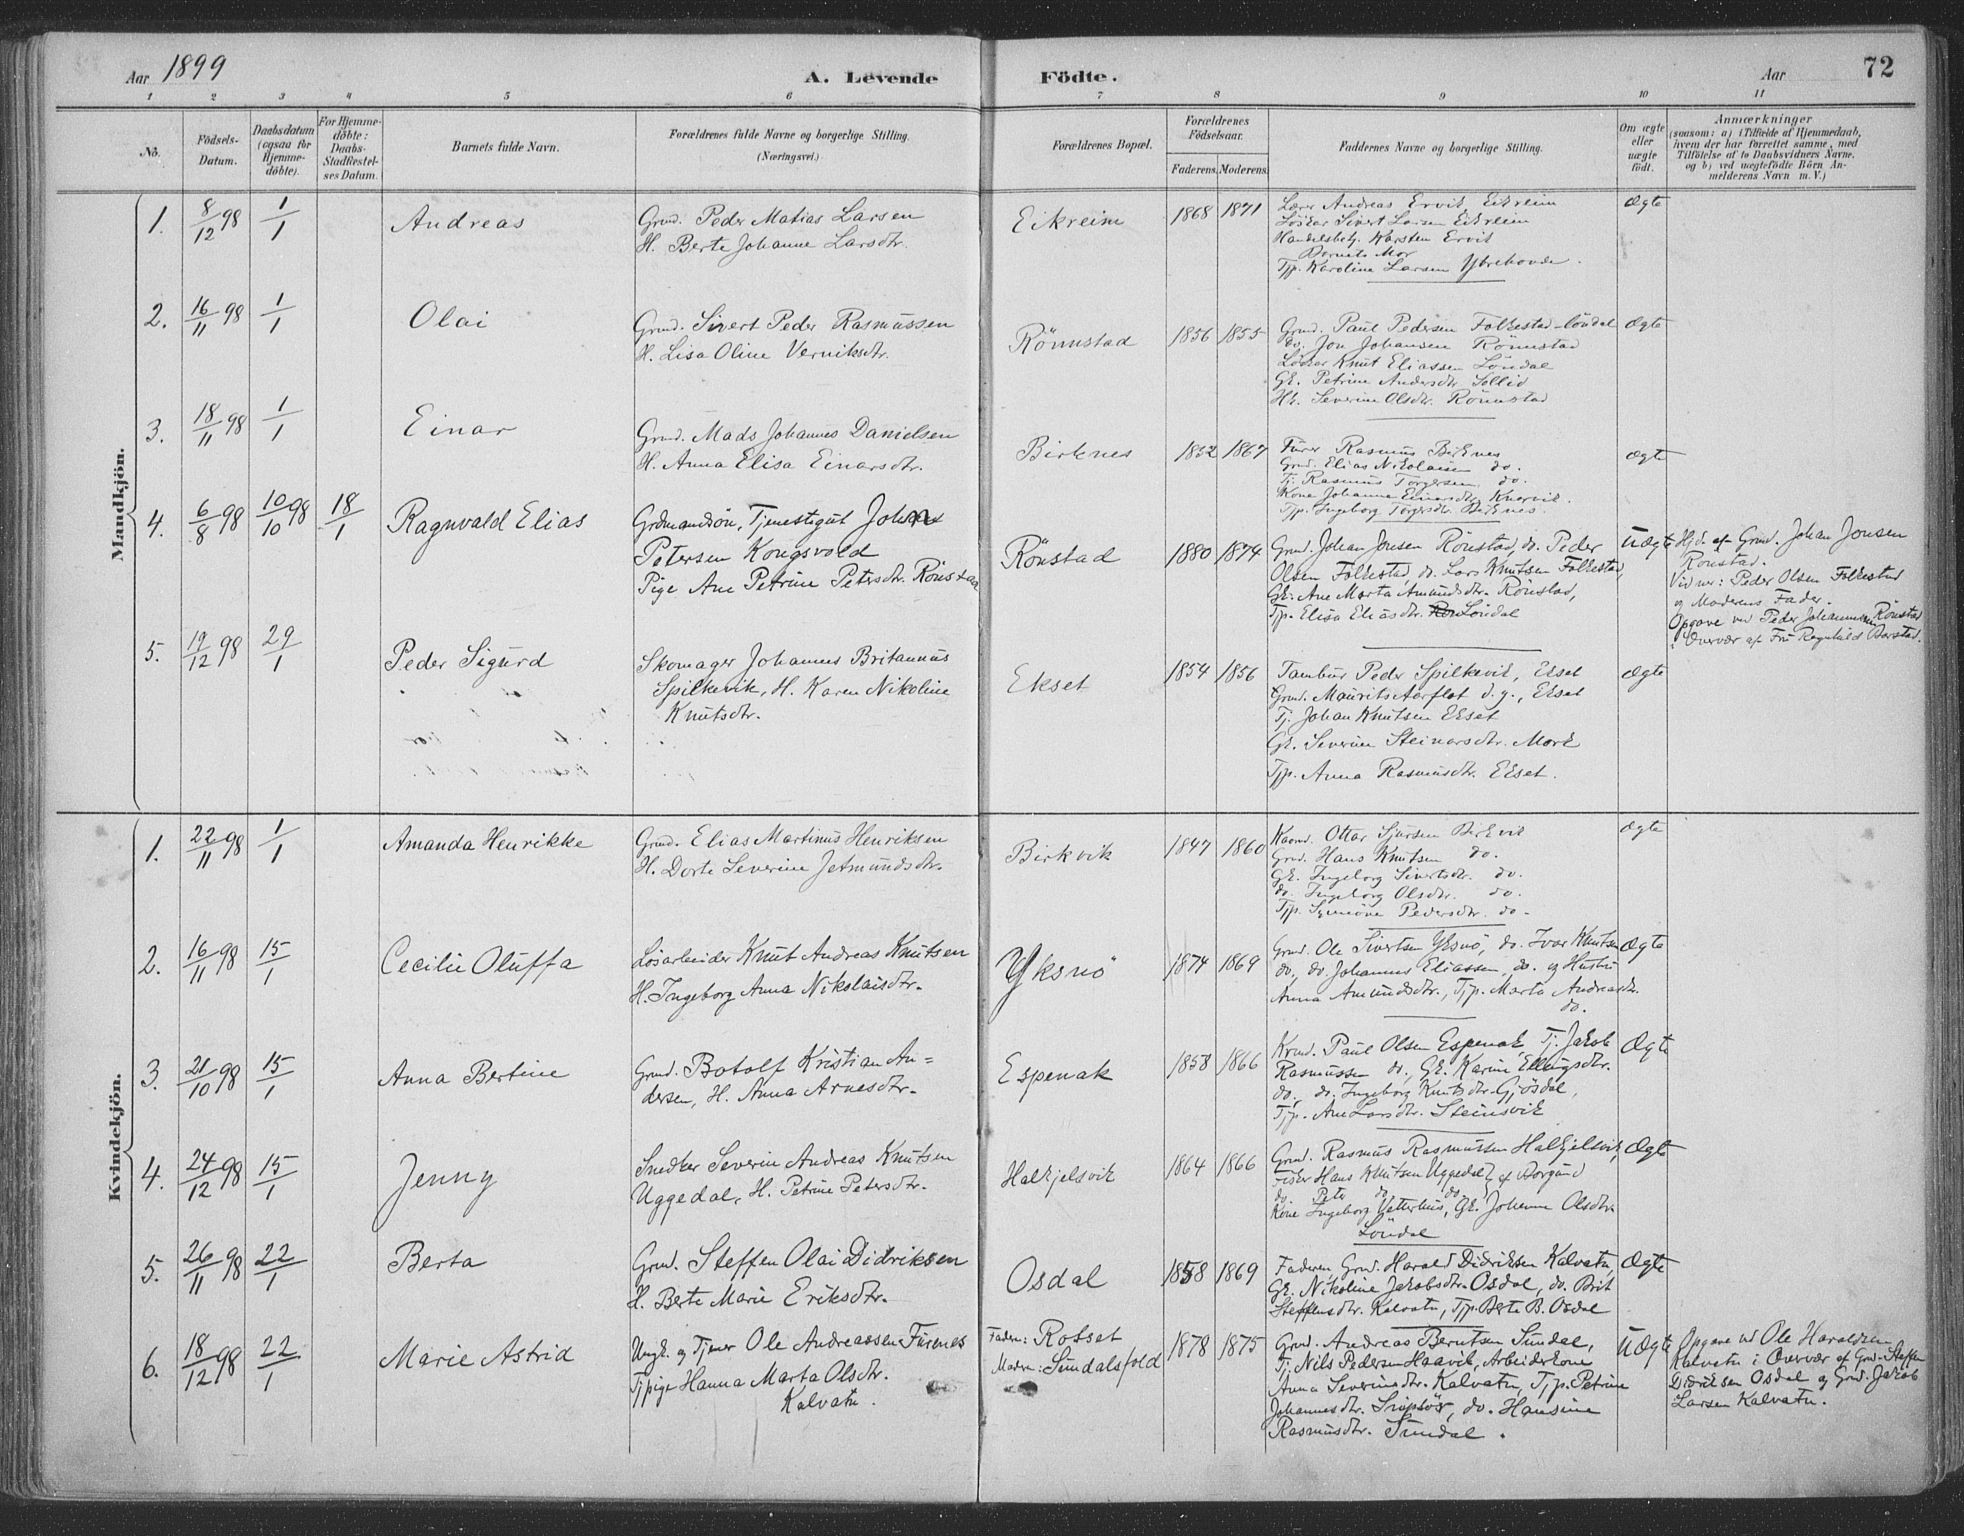 Aar 1899
A. Levende Födte.
Aar
72
1 2 3 4 5 6 7 8 9 10 11
No.
Födsels-
Datum.
Daabsdatum
(ogsaa for
Hjemme-
döbte).
For Hjemme-
döbte:
Daabs-
Stadfæstel-
ses Datum.
Barnets fulde Navn.
Forældrenes fulde Navne og borgerlige Stilling.
(Næringsvei.)
Forældrenes Bopæl.
Forældrenes
Födselsaar.
Faderens. Moderens.
Faddernes Navne og borgerlige Stilling.
Om ægte
eller
uægte
födt.
Anmærkninger
(saasom: a) i Tilfælde af Hjemmedaab,
hvem der har forrettet samme, med
Tilföielse af to Daabsvidners Navne,
og b) ved uægtefödte Börn An-
melderens Navn m. V.)
Mandkjön.
1. 8/12 98 1/1 Andreas
Grmd. Peder Matias Larsen
H. Berte Johanne Larsdtr.
Eikreim 1868 1871
Lærer Andreas Ervik Eikreim
Löskar Sivert Larsen Eikreim
Handelsbetj. Karsten Ervik
Barnets Mor
Tjp. Karoline Larsen Ytrehovde.
Ægte
2. 16/11 98 1/1 Olai
Grmd. Sivert Peder Rasmussen
H. Lisa Oline Verniksdtr.
Rönnstad 1856 1855
Grmd. Paul Pedersen Folkestad-löndal
do. Jon Johansen Rönnstad
Löskar Knut Eliassen Löndal
Gk. Petrine Andersdtr. Sollid
Hk. Severine Olsdtr. Rönnstad
Ægte
3. 18/11 98 1/1 Einar
Grmd. Mads Johannes Danielsen
H. Anna Elisa Einarsdtr.
Birknes 1852 1867
Furer Rasmus Birknes
Grmd. Elias Nikolaisen do.
Tj. Rasmus Torgersen do.
Kone Johanna Einarsdtr. Knervik.
Tjp. Ingeborg Torgersdtr. Birknes.
Ægte
4. 6/8 98 10/10 98 18/1 Ragnvald Elias
Grdmandsön, Tjenestegut Johan
Petersen Kongsvold
Pige Ane Petrine Petersdtr. Rönstad
Rönstad 1880 1874
Grmd. Johan Jonsen Rönstad, do. Peder
Olsen Folkestad, do. Lars Knutsen Folkestad,
Gk. Ane Marta Amundsdtr. Rönstad,
Tjp. Elisa Eliasdtr. Löndal
Uægte
Hjd. af Grmd. Johan Jonsen
Rönstad.
Vidner: Peder Olsen Folkestad
og Moderens Fader.
Opgave ved Peder Johannessen Rönstad
i Overvær af Fru Ragnhild Barstad.
5. 19/12 98 29/1 Peder Sigurd
Skomager Johannes Britannus
Spilkevik, H. Karen Nikoline
Knutsdtr.
Ekset 1854 1856
Tambur Peder Spilkevik, Ekset
Grmd. Maurits Aarflot d. y., Ekset
Tj. Johan Knutsen Ekset
Gk. Severine Steinarsdtr. Mork
Tjp. Anna Rasmusdtr. Ekset.
Ægte
Kvindekjön.
1. 22/11 98 1/1 Amanda Henrikke
Grmd. Elias Martinus Henriksen
H. Dorte Severine Jetmundsdtr.
Birkvik 1847 1860
Kaarmd. Ottar Sjursen Birkvik
Grmd. Hans Knutsen do.
Gk. Ingeborg Sivertsdtr. do.
do. Ingeborg Olsdtr. do.
Tjp. Synnöve Pedersdtr. do.
Ægte
2. 16/11 98 15/1 Cecilie Oluffa
Lösarbeider Knut Andreas Knutsen
H. Ingeborg Anna Nikolaisdtr.
Yksnö 1874 1869
Grmd. Ole Sivertsen Yksnö, do. Ivar Knutsen
do, do. Johannes Eliassen, do. og Hustru
Anna Amundsdtr., Tjp. Marta Andreasdtr.
do.
Ægte
3. 21/10 98 15/1 Anna Bertine
Grmd. Botolf Kristian An=
dersen, H. Anna Arnesdtr.
Espenak 1858 1866
Krmd. Paul Olsen Espenak, Tj. Jakob
Rasmussen do, Gk. Karine Ellingsdtr.
do, do. Ingeborg Knutsdtr. Gjösdal,
Tjp. Ane Larsdtr. Steinsvik
Ægte
4. 24/12 98 15/1 Jenny
Snedker Severin Andreas Knutsen
Uggedal, H. Petrine Petersdtr.
Halkjelsvik 1864 1866
Grmd. Rasmus Rasmussen Halkjelsvik,
Fisker Hans Knutsen Uggedal af Borgund
do. Peter do. do.
Kone Ingeborg Vatterhus, Gk. Johanne Olsdtr.
Löndal
Ægte
5. 26/11 98 22/1 Berta
Grmd. Steffen Olai Didriksen
H. Berte Marie Eriksdtr.
Osdal 1858 1869
Faderen Grmd. Harald Didriksen Kalvatn,
Gk. Nikoline Jakobsdtr. Osdal, do. Brit
Steffensdtr. Kalvatn, Tjp. Berte B. Osdal
Ægte
6. 18/12 98 22/1 Marie Astrid
Ungk. og Tjener Ole Andreassen Furenes
Tjpige Hanna Marta Olsdtr.
Kalvatn.
Faderen: Rotset
Moderen: Sundalsfold
1878 1875
Grmd. Andreas Berntsen Sundal,
Tj. Nils Pedersen Haavik, Arbeiderkone
Anna Severinsdtr. Kalvatn, Tjp. Petrine
Johannesdtr. do. Hansine
Rasmusdtr. Sundal.
Uægte
Opgave ved Ole Haraldsen
Kalvatn i Overvær af Grmd. Steffen
Didriksen Osdal og Grmd. Jakob
Larsen Kalvatn.